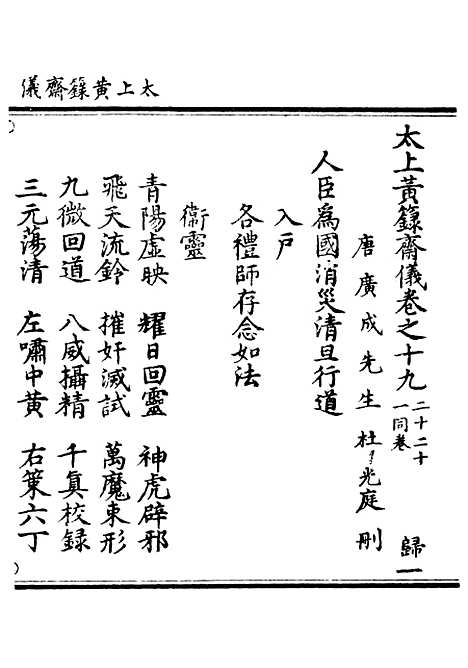 太上黃籙齋儀
太上黃籙齋儀卷之十九 二十二十一同卷 歸一
唐廣成先生杜光庭刪
人臣爲國消災清旦行道
入戶
各禮師存念如法
衞靈
青陽虛映 耀日回靈 神虎辟邪
飛天流鈴 摧奸滅試 萬魔束形
九微回道 八威攝精 千眞校錄
三元蕩清 左嘯中黃 右策六丁